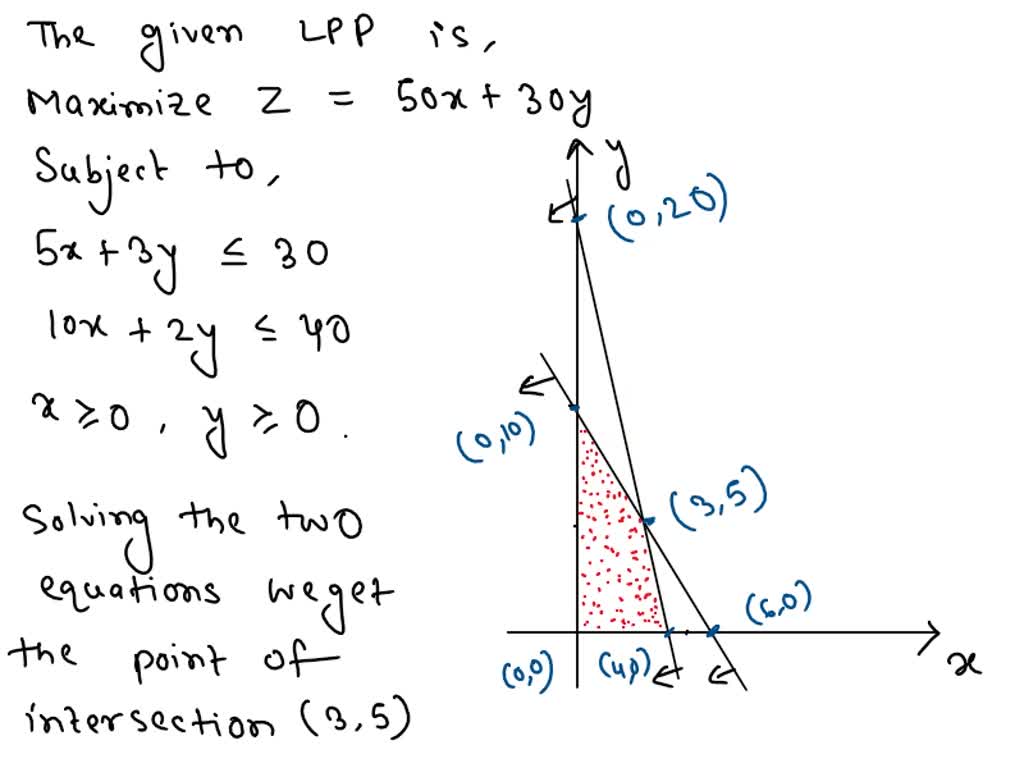 The given LPP is,
Maximize Z = 50x + 30y
Subject to,
5x + 3y ≤ 30
10x + 2y ≤ 40
x ≥ 0 , y ≥ 0 .
Solving the two
equations we get
the point of
intersection (3,5)
y
(0,20)
(0,10)
(3,5)
(6,0)
(0,0)
(4,0)
x